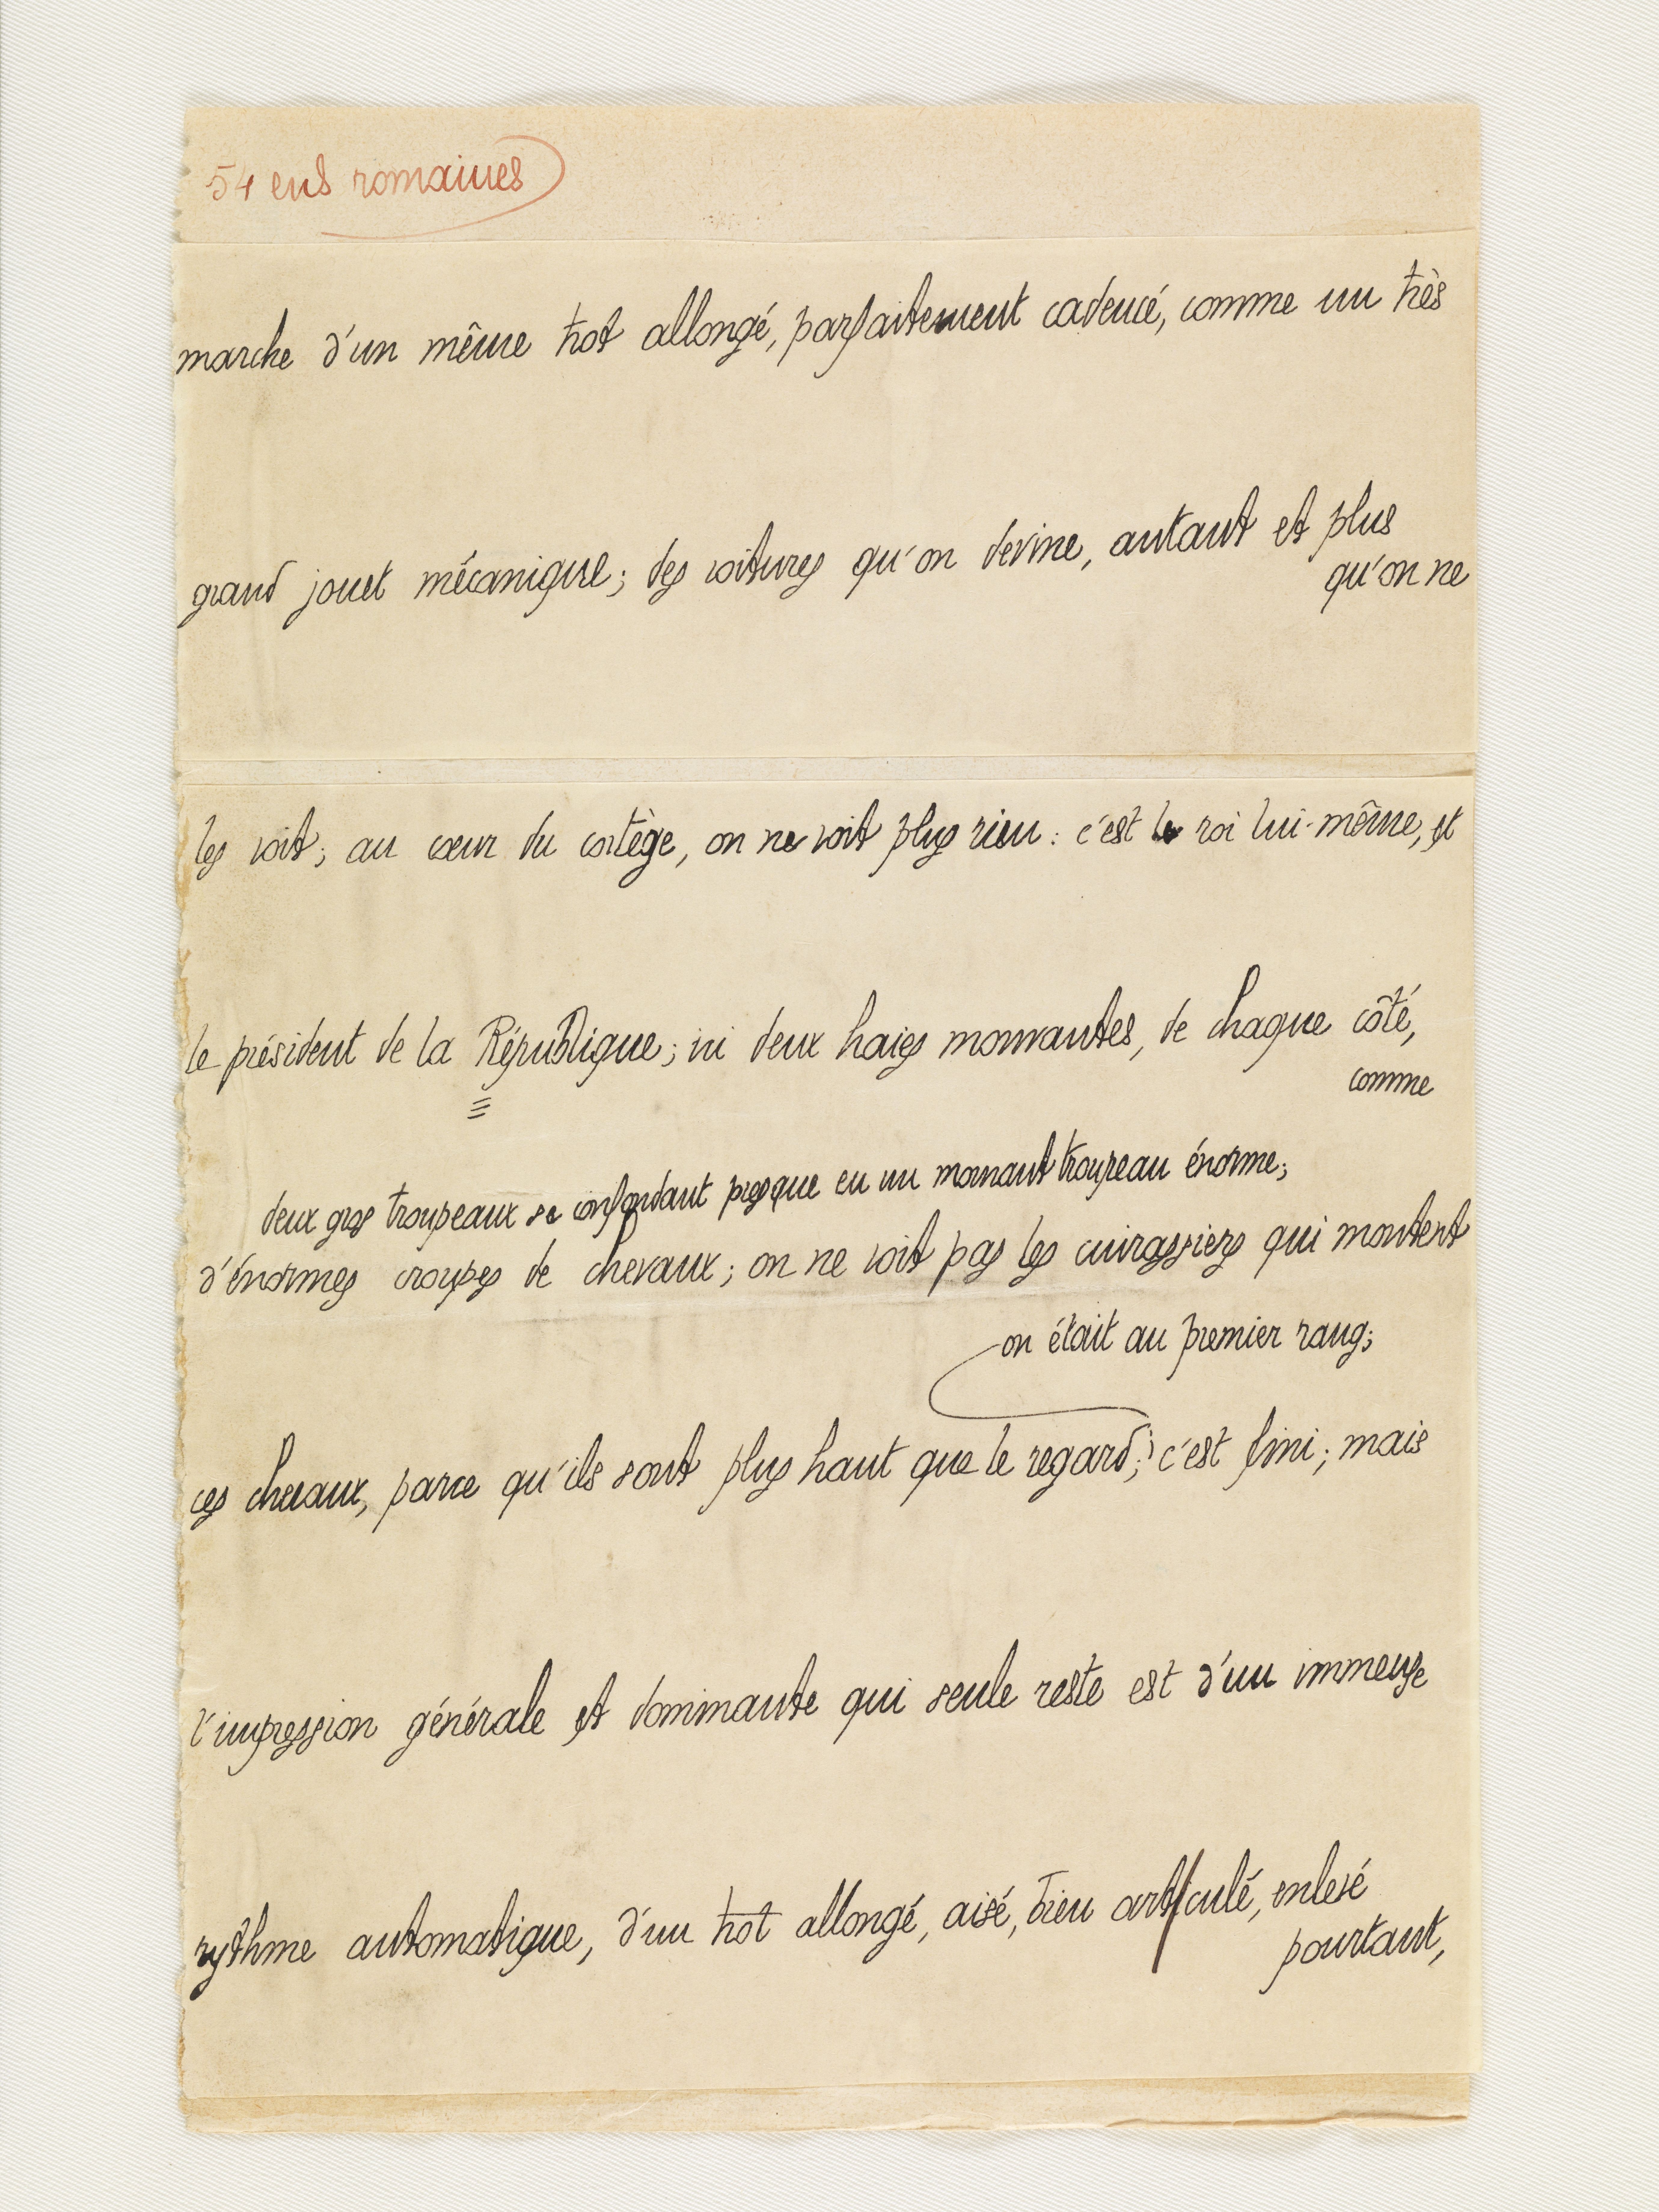 54 ens romaines
marche d'un même trot allongé, parfaitement cadencé, comme un très
grand jouet mécanique; des voitures qu'on devine, autant et plus
qu'on ne
les voit; au cœur du cortège, on ne voit plus rien: c'est le roi lui-même, et
le président de la République; ni deux haies mouvantes, de chaque côté,
comme
deux gros troupeaux se confondant presque en un mouvant troupeau énorme;
d'énormes croupes de chevaux; on ne voit pas les cuirassiers qui montent
on était au premier rang;
ces chevaux, parce qu'ils sont plus haut que le regard; c'est fini; mais
l'impression générale et dominante qui seule reste est d'un immense
rythme automatique, d'un trot allongé, aisé, bien articulé, enlevé
pourtant,